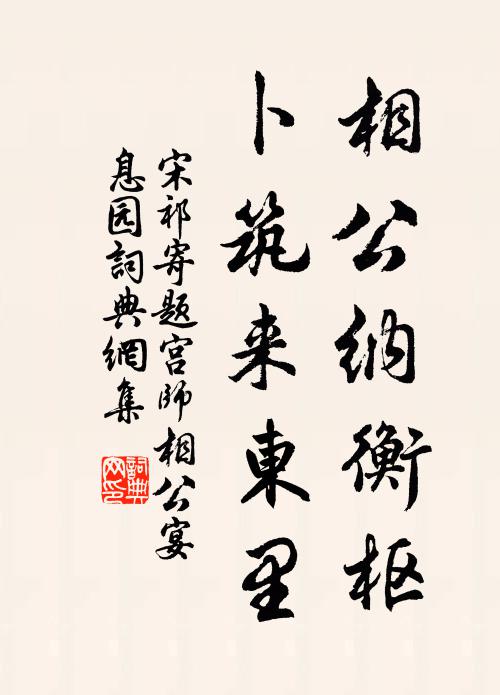 相公纳衡枢
卜筑来東里
宋祁寄题宫师相公宴
息园詞典網集
詞典网印